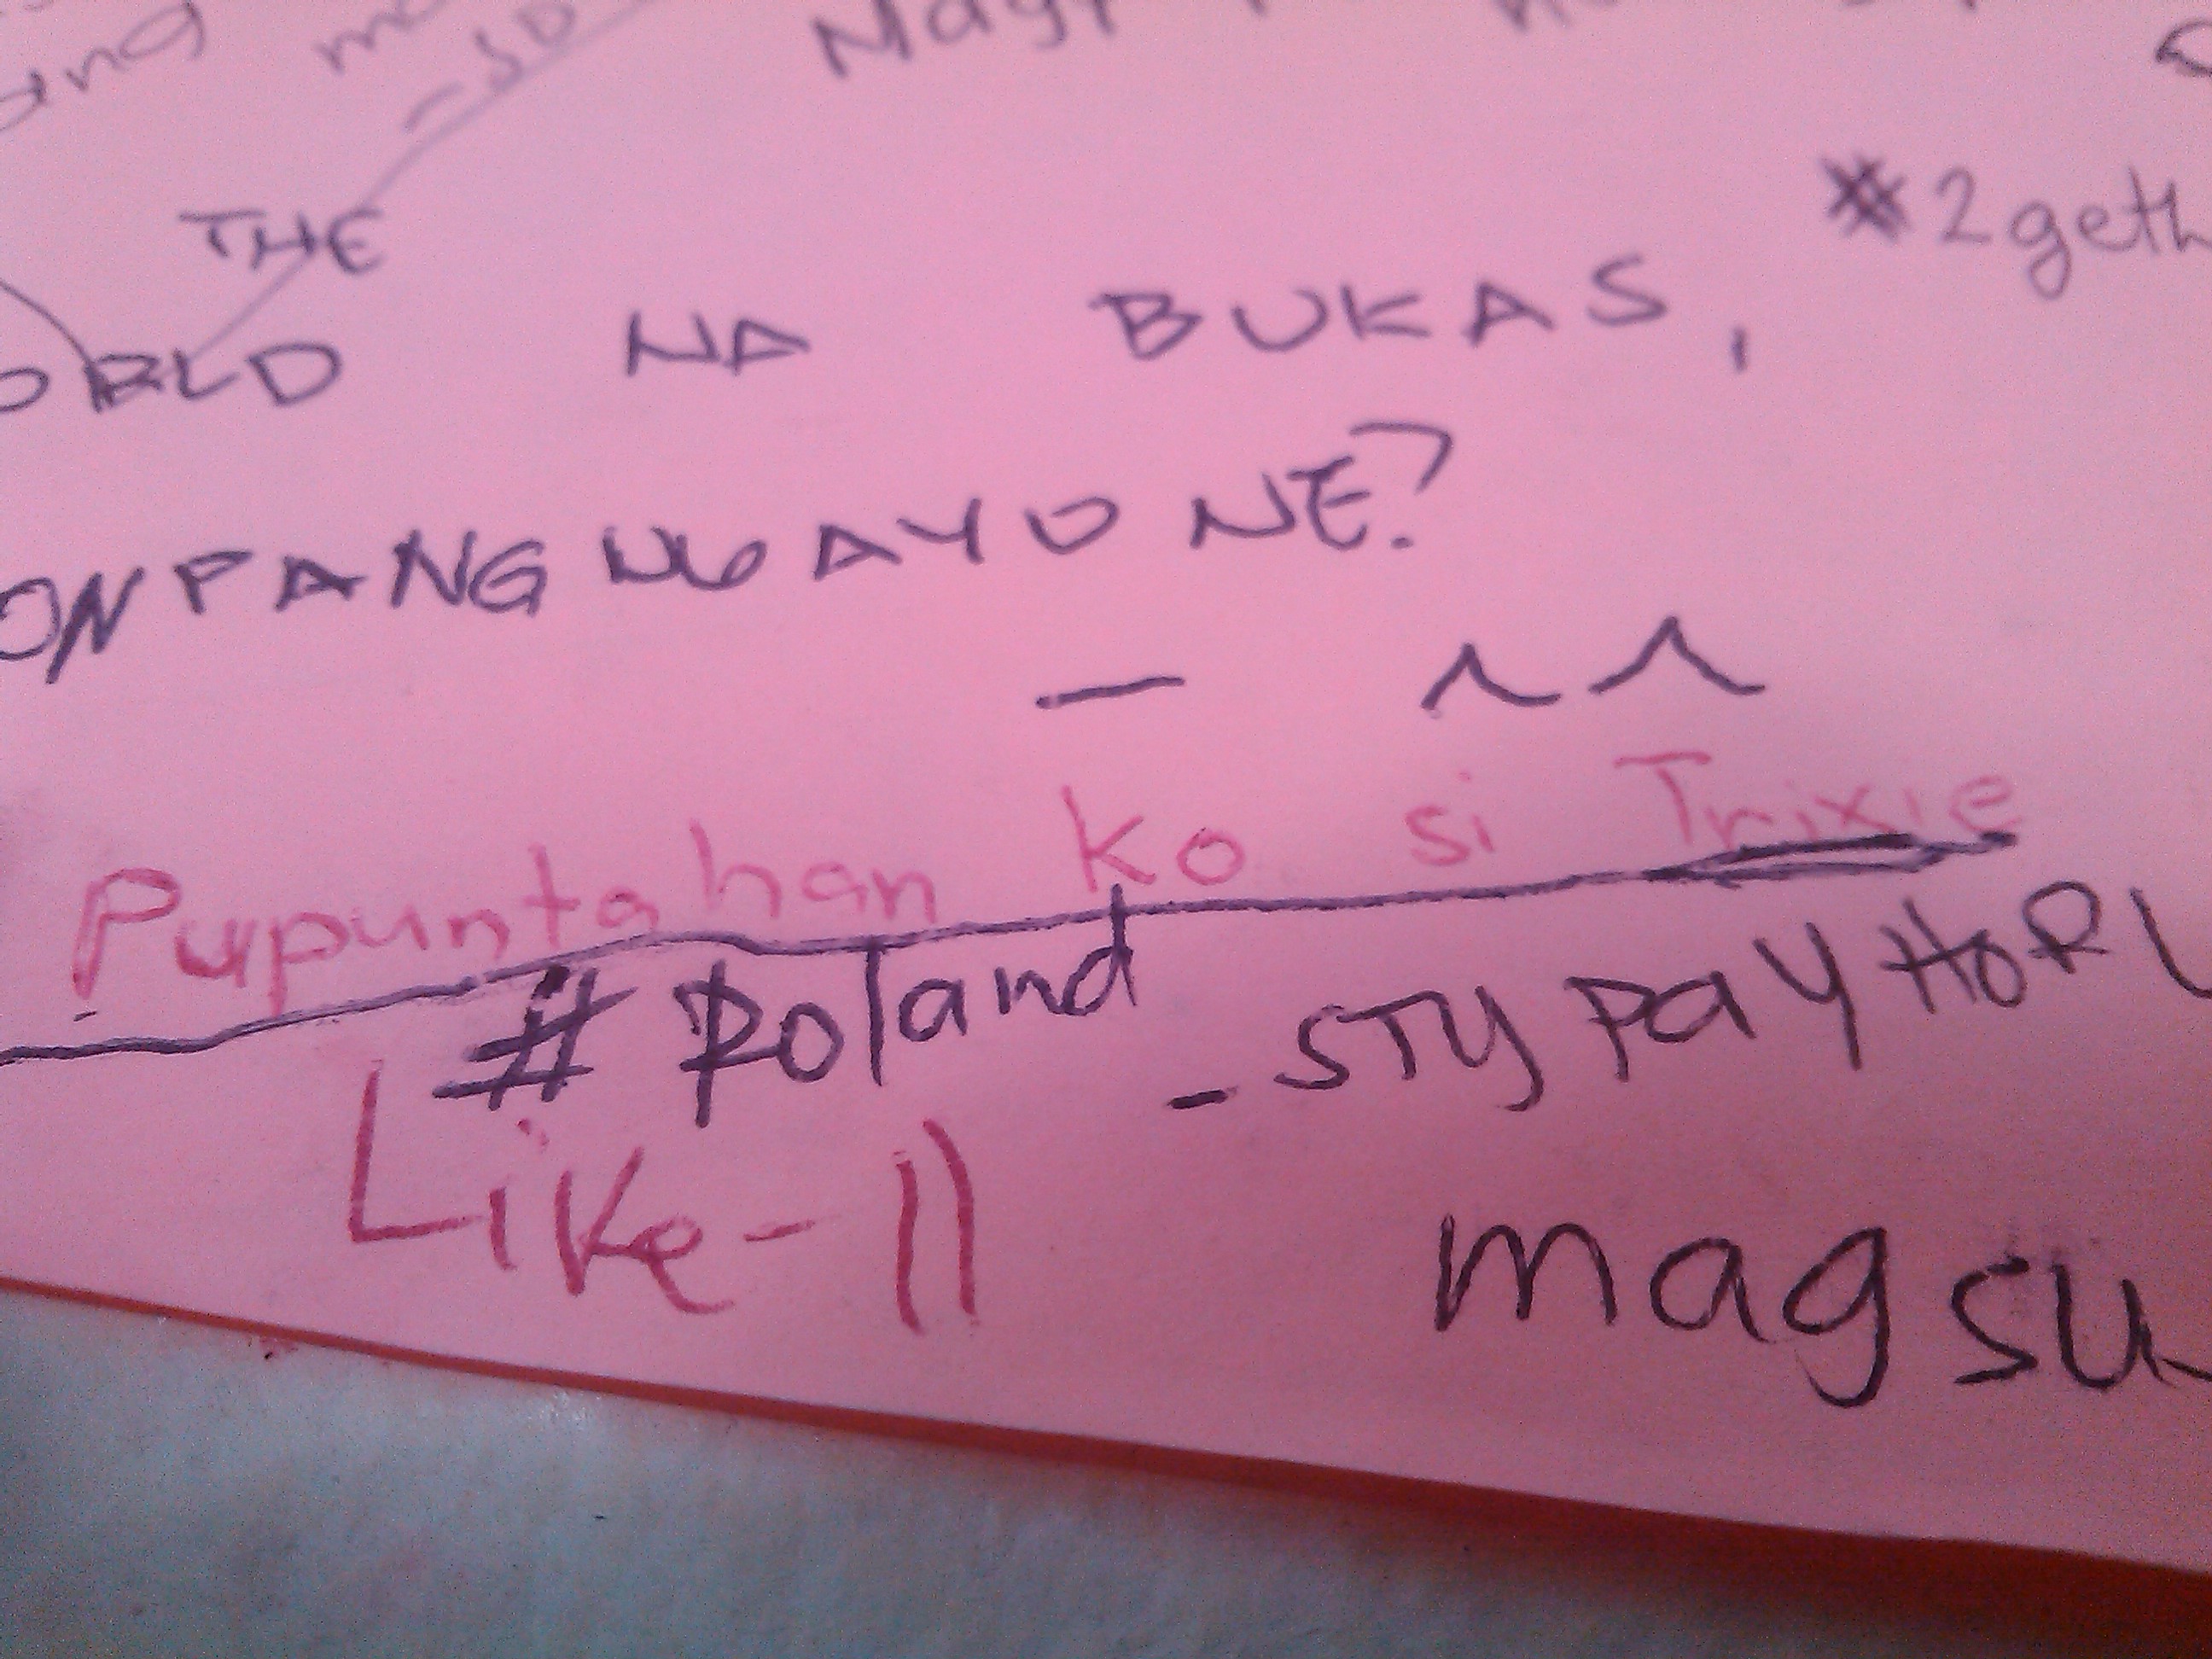 THE
#2geth
ORLD NA BUKAS,
ON PANG NGAYO NE?
— ^^
Pupuntahan ko si Trixie
#Roland
- STY PAY HOR
Like-11
magsu